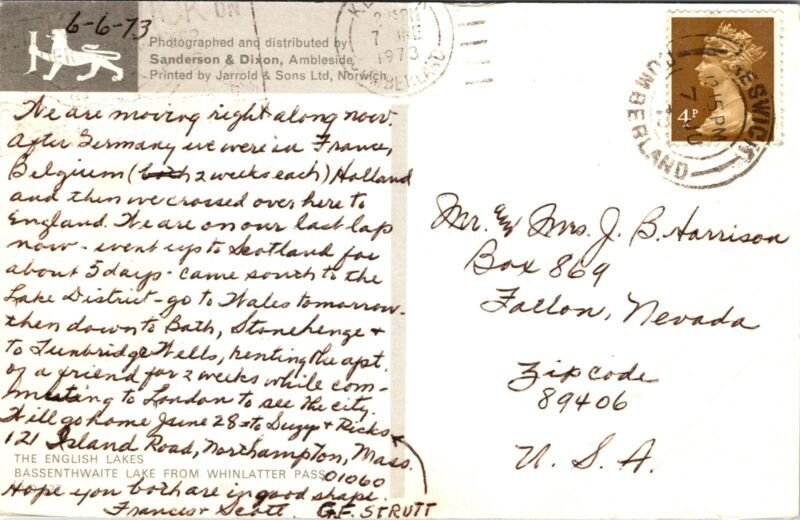 6-6-73
Photographed and distributed by
Sanderson & Dixon, Ambleside
Printed by Jarrold & Sons Ltd, Norwich
1973
CUMBERLAND
4P
KESWICK
CUMBERLAND
We are moving right along now.
After Germany we were in France,
Belgium (both 2 weeks each) Holland
and then we crossed over here to
England. We are on our last lap
now - went up to Scotland for
about 5 days - came south to the
Lake District - go to Wales tomorrow -
then down to Bath, Stonehenge +
to Tunbridge Wells, renting the apt.
of a friend for 2 weeks while com-
muting to London to see the city.
Will go home June 28 - to Suzy + Ricks
121 Island Road, Northampton, Mass.
01060
THE ENGLISH LAKES
BASSENTHWAITE LAKE FROM WHINLATTER PASS
Hope you both are in good shape.
Frances + Scott. G.F. STRUTT
Mr. and Mrs. J. B. Harrison
Box 869
Fallon, Nevada
Zip code
89406
U. S. A.